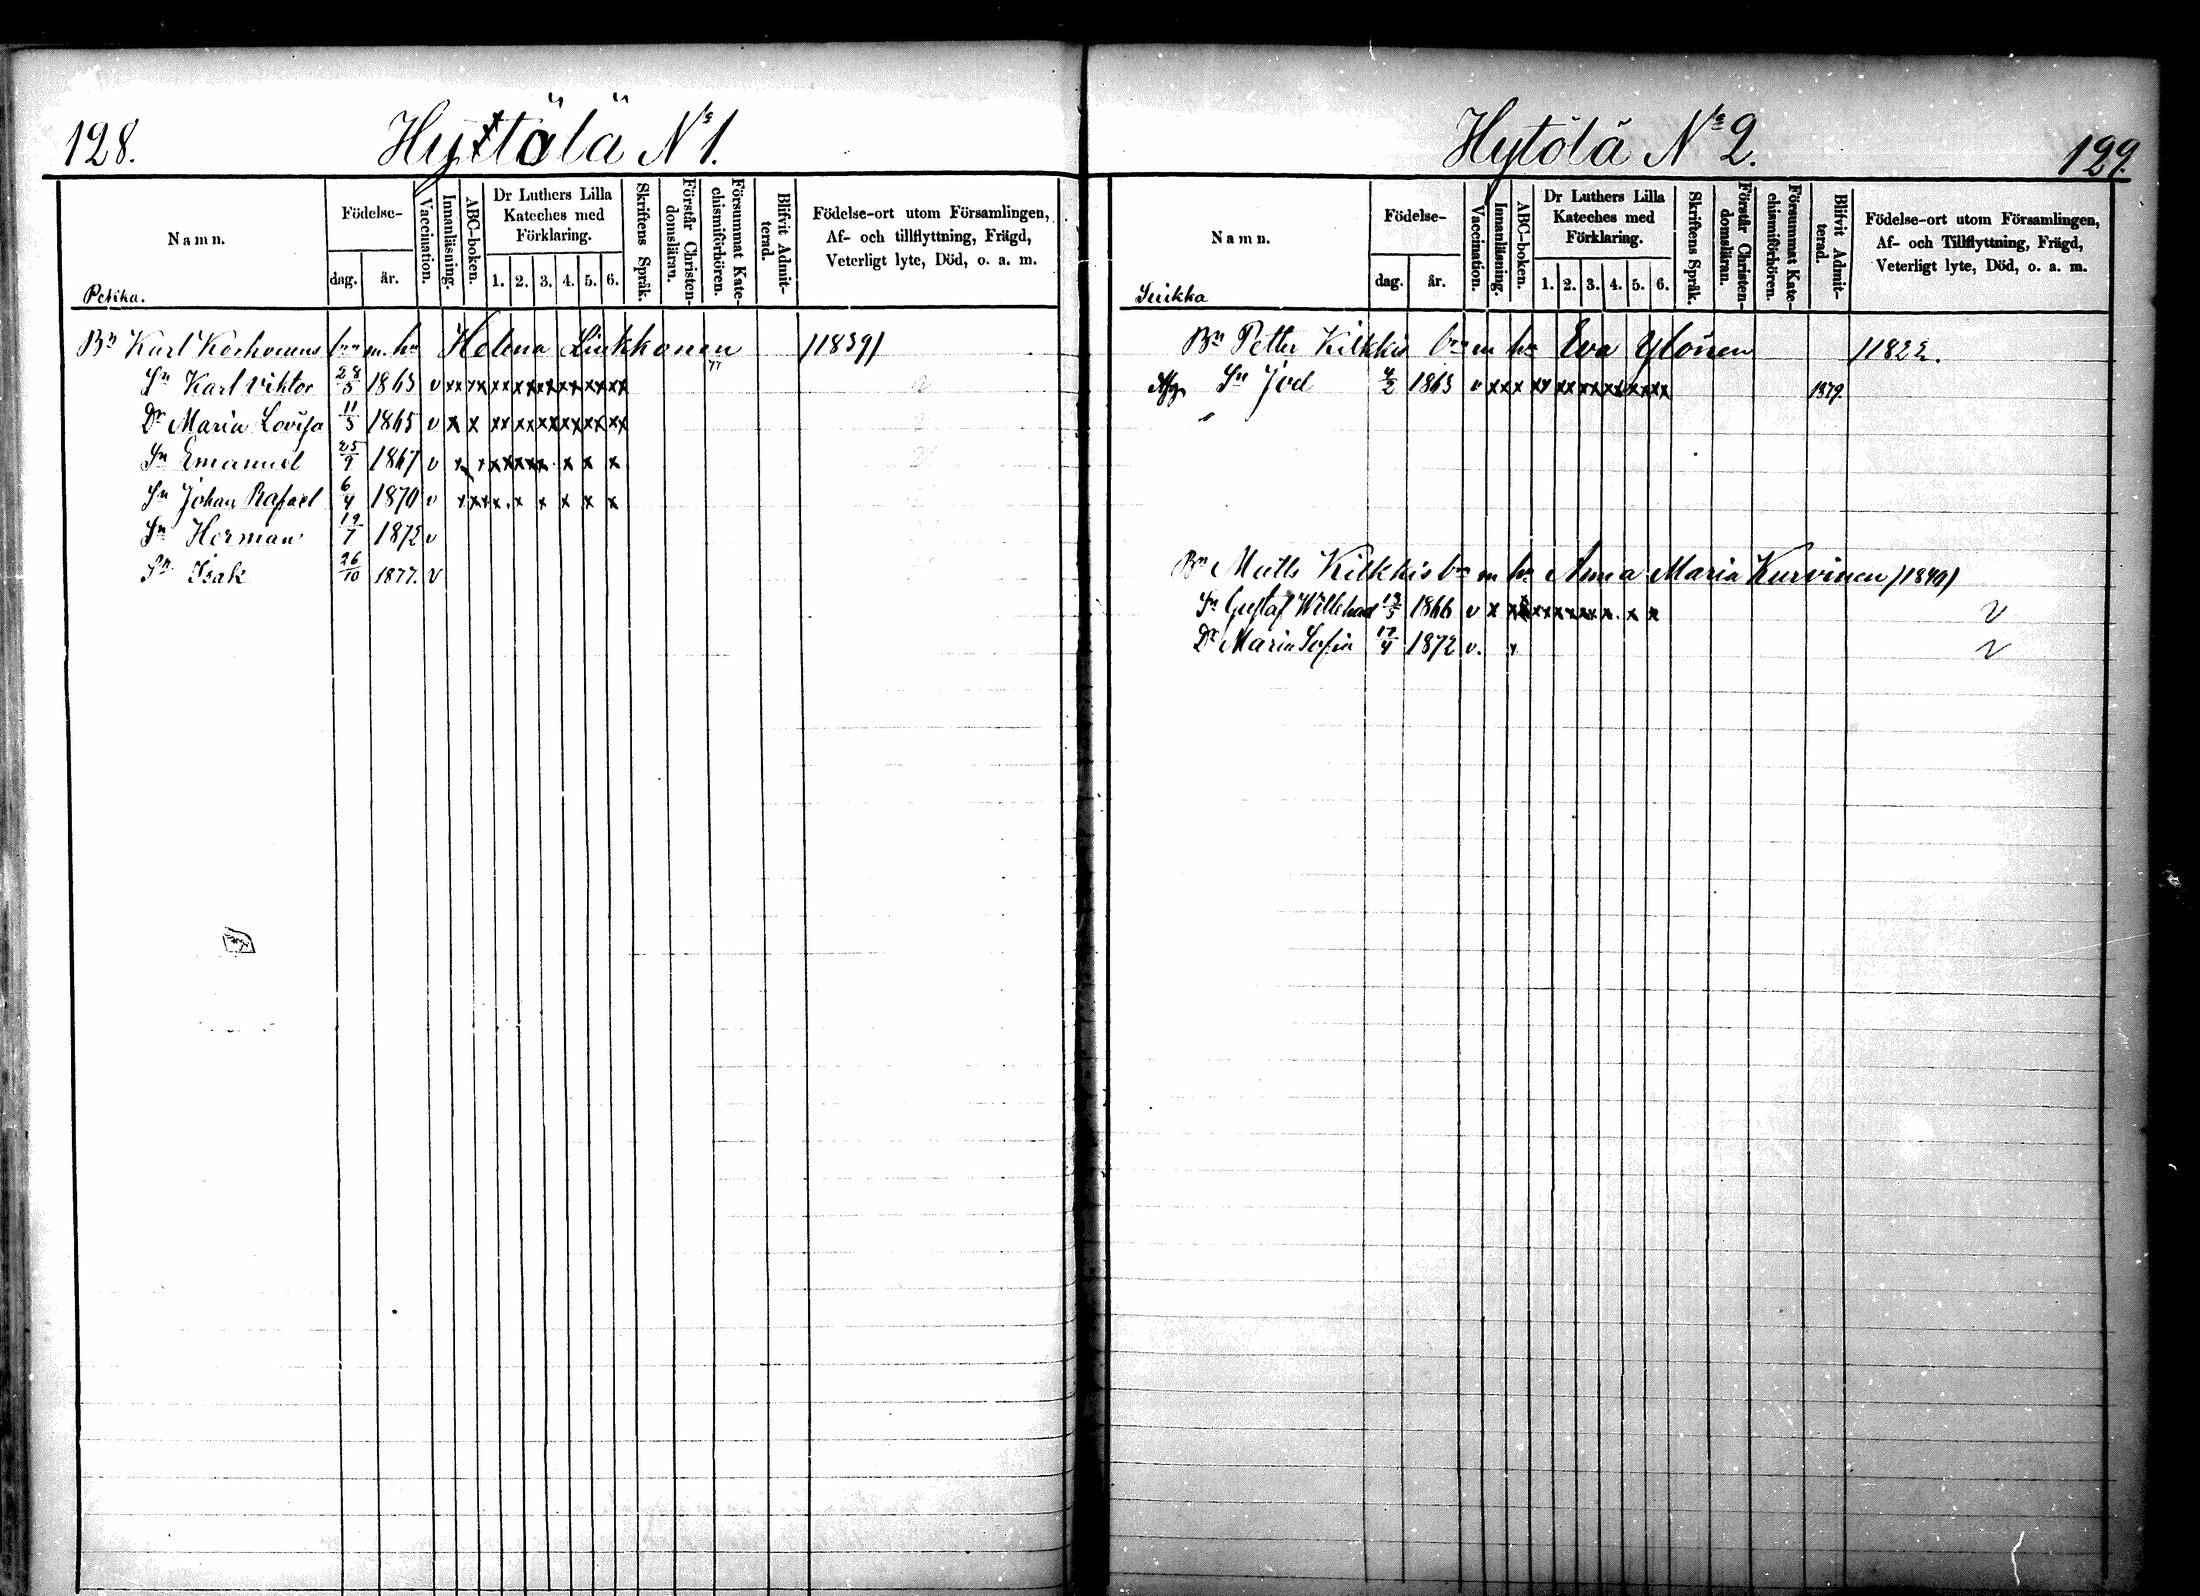 128.
Hyttölä No 1.
Namn.
Födelse-
dag.
år.
Vaccination.
Innanläsning.
ABC-boken.
Dr Luthers Lilla
Kateches med
Förklaring.
1. 2. 3. 4. 5. 6.
Skriftens Språk.
Förstår Christen-
domsläran.
Försummat Kate-
chismiförhören.
Blifvit Admit-
terad.
Födelse-ort utom Församlingen,
Af- och tillflyttning, Frägd,
Veterligt lyte, Död, o. a. m.
Petika.
Bn Karl Korhonens brn m. hu Helena Liukkonen /1839/
77
Sn Karl Viktor 28/5 1863 v xx xx xx xx xx xx xx xx
Dr Maria Lovisa 11/5 1865 v x x xx xx xx xx xx xx
Sn Emanuel 25/9 1867 v x x xx xx xx x x x
Sn Johan Rafael 6/4 1870 v x xx x x x x x x
Sn Herman 19/7 1872 v
Sn Isak 26/10 1877. v
Hytölä No 2.
129.
Namn.
Födelse-
dag.
år.
Vaccination.
Innanläsning.
ABC-boken.
Dr Luthers Lilla
Kateches med
Förklaring.
1. 2. 3. 4. 5. 6.
Skriftens Språk.
Förstår Christen-
domsläran.
Försummat Kate-
chismiförhören.
Blifvit Admit-
terad.
Födelse-ort utom Församlingen,
Af- och Tillflyttning, Frägd,
Veterligt lyte, Död, o. a. m.
Suikka
Bn Petter Kilkkis brn m hu Eva Ylönen /1822.
Sn Joel 4/2 1863 v xx x xx xx xx xx xx xx 1879.
Bn Matts Kilkkis brn m hu Anna Maria Kurvinen /1840/
Sn Gustaf Willehad 19/5 1866 v x xx xx xx xx x. x x v
Dr Maria Sofia 17/4 1872 v. v v